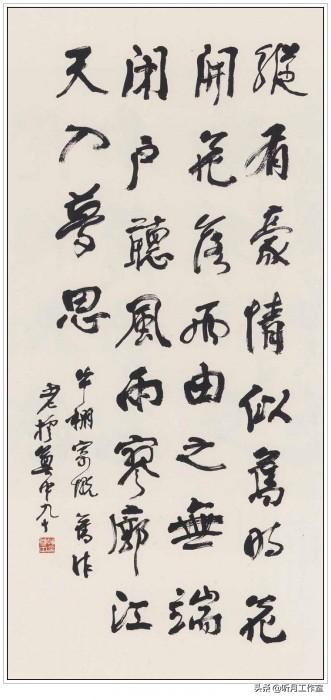 縱有豪情似舊時花
開花落两由之無端
閉户聽風雨寥廓江
天入夢思
牛棚寄慨 舊作
九十
头条 @听月工作室